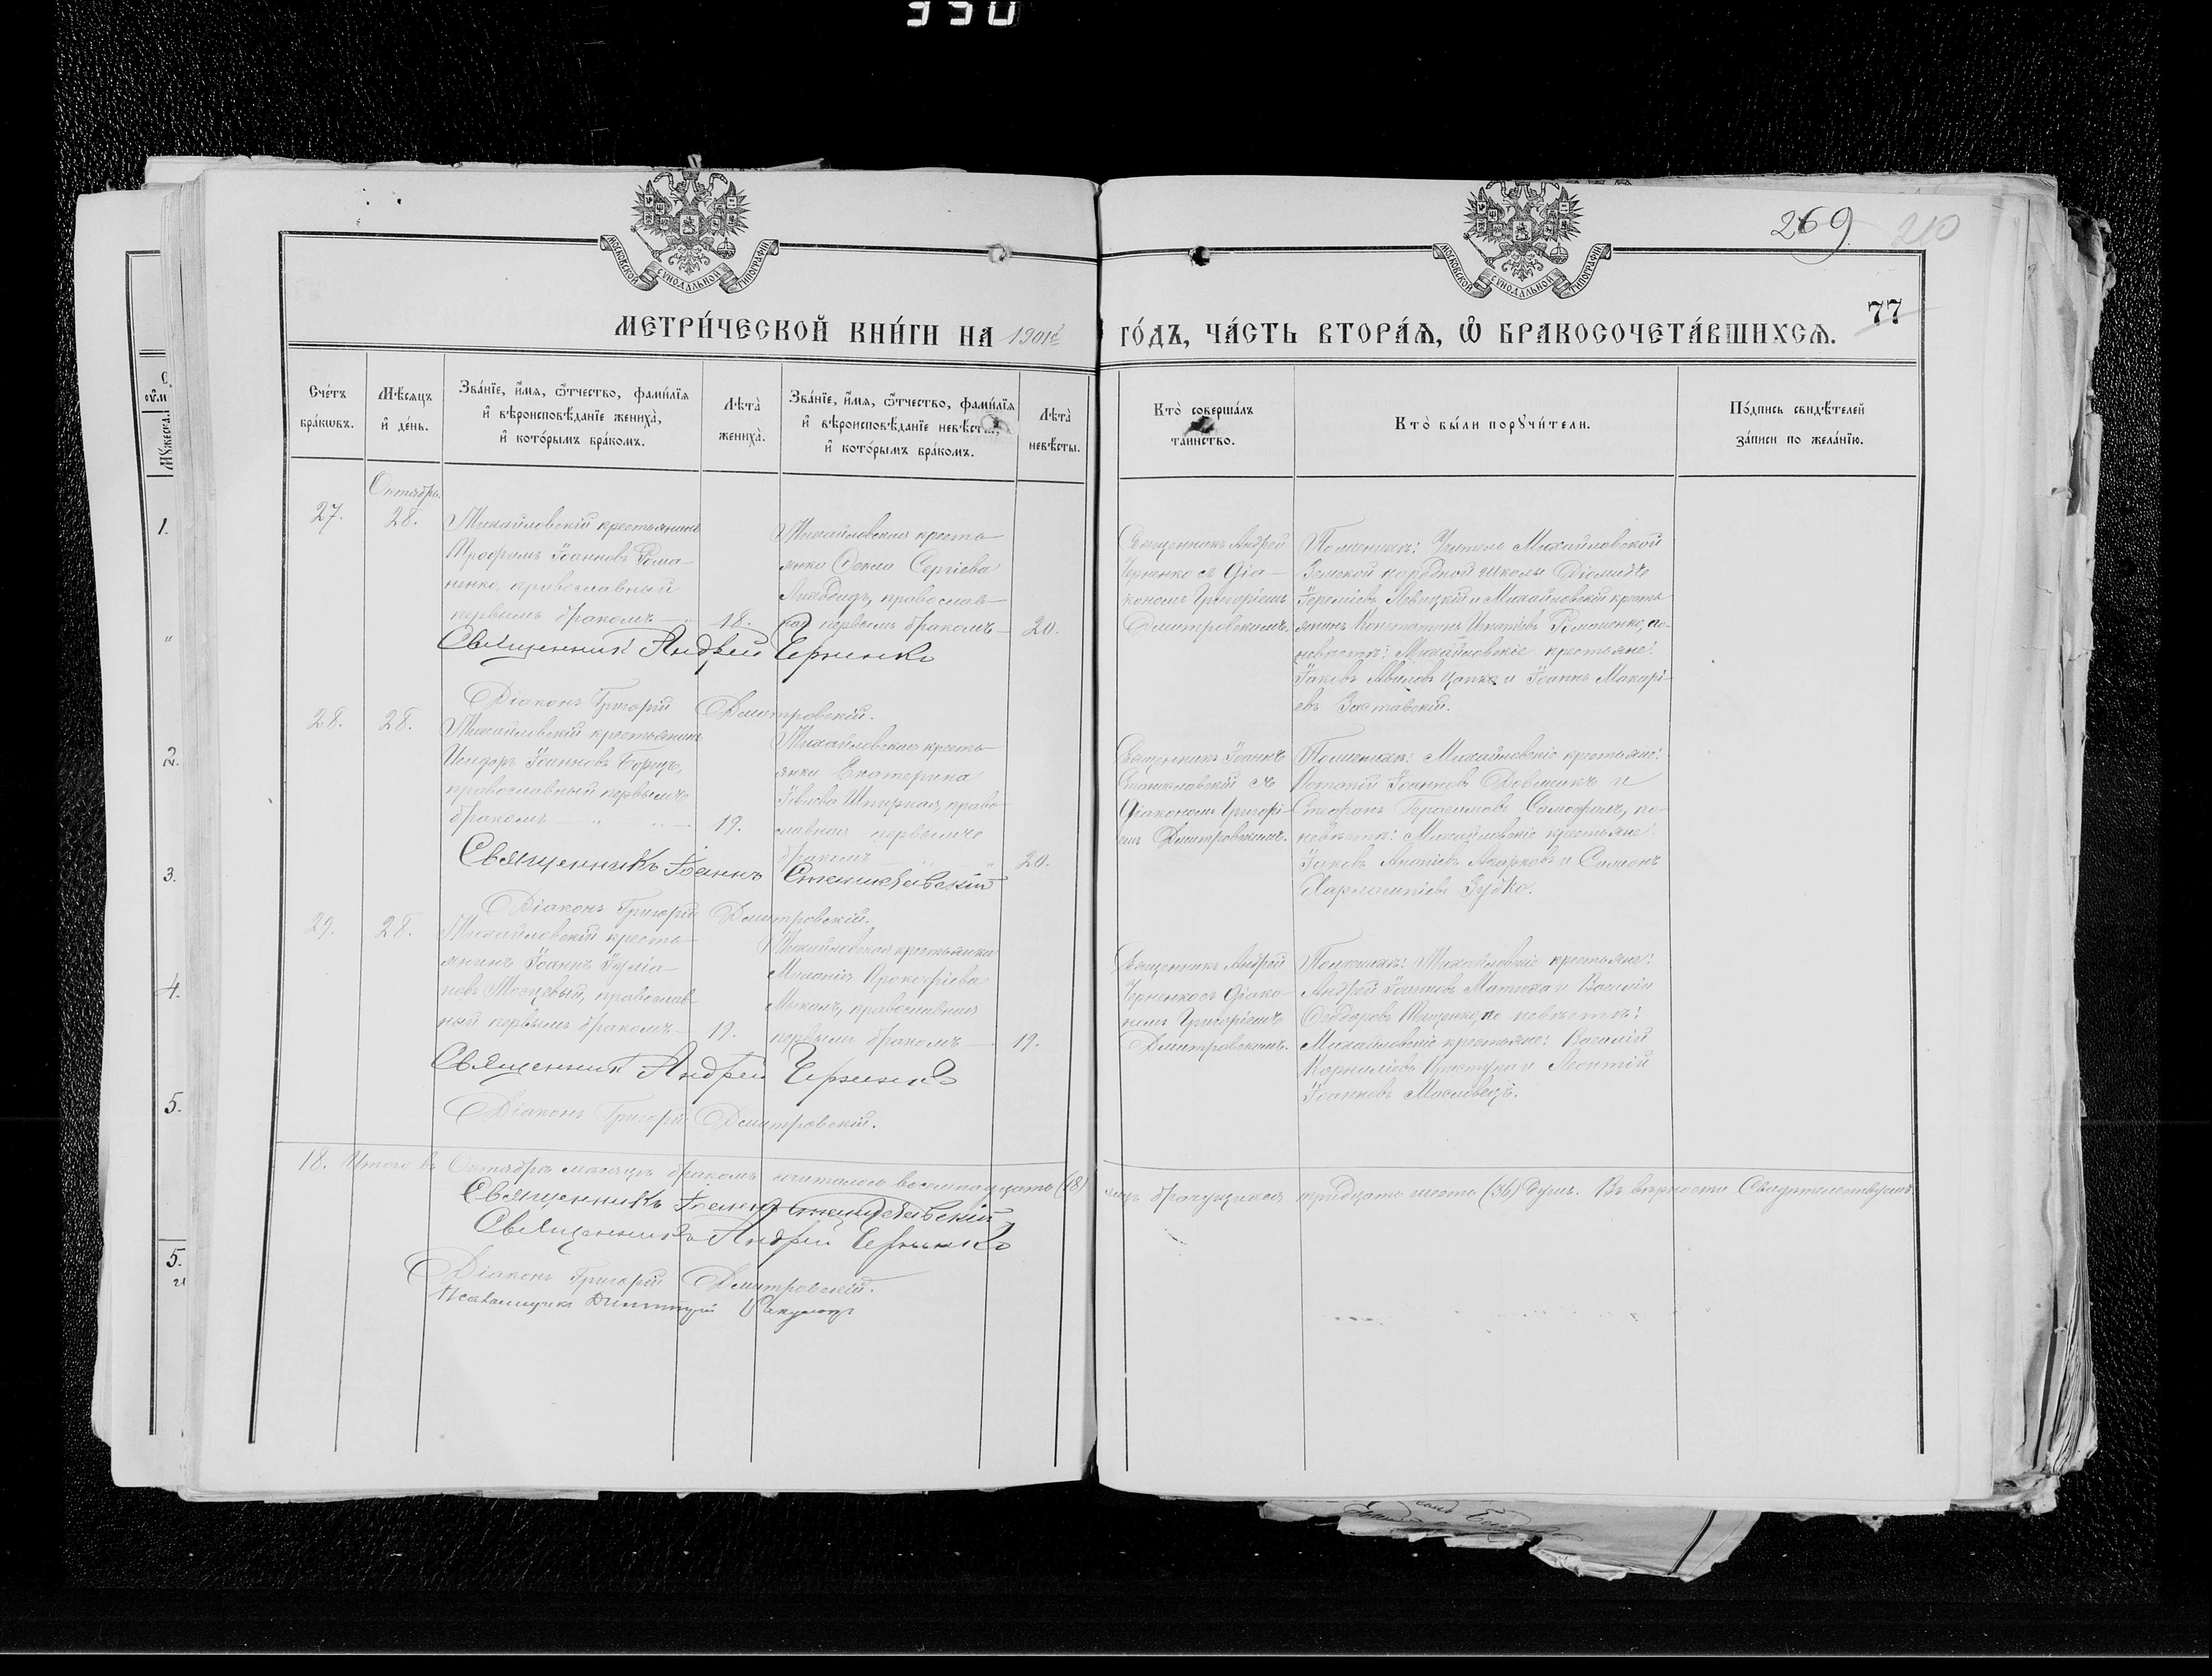 330
269
210
77
МОСКОВСКОЙ СУНОДАЛЬНОЙ ТИПОГРАФІИ
МОСКОВСКОЙ СУНОДАЛЬНОЙ ТИПОГРАФІИ
МЕТРИ́ЧЕСКОЙ КНИ́ГИ НА 1901й ГО́ДЪ, ЧА́СТЬ ВТОРА́Ѧ, Ѡ БРАКОСОЧЕТА́ВШИХСѦ.
Сче́тъ бра́кѡвъ.
Мѣ́сѧцъ и҆ де́нь.
Зва́нїе, и҆́мѧ, ѻ҆́тчество, фами́лїѧ и҆ вѣроисповѣ́данїе жениха̀, и҆ кото́рымъ бра́комъ.
Лѣта̀ жениха̀.
Зва́нїе, и҆́мѧ, ѻ҆́тчество, фами́лїѧ и҆ вѣроисповѣ́данїе невѣ́сты, и҆ кото́рымъ бра́комъ.
Лѣта̀ невѣ́сты.
Кто̀ соверша́лъ таинство.
Кто̀ бы́ли порꙋчи́тели.
По́дпись свидѣ́телей за́писи по жела́нїю.
Октябрь.
27.
28.
Михайловскій крестьянинъ
Трофимъ Іоанновъ Рома-
ненко, православный
первымъ бракомъ
18.
Михайловская кресть-
янка Ѳекла Сергіева
православ-
ная первымъ бракомъ
20.
Священникъ Андрей
Черненко съ діа-
кономъ Григоріемъ
Дмитровскимъ.
По женихѣ: Учитель Михайловской
Земской народной школы Діомидъ
Іереміевъ Левицкій и Михайловскій кресть-
янинъ Константинъ Игнатіевъ Романенко, по
невѣстѣ: Михайловскіе крестьяне:
Іаковъ Цапко и Іоаннъ Макарі-
евъ Заставскій.
Священникъ Андрей Черненко
Діаконъ Григорій Дмитровскій.
28.
28.
Михайловскій крестьянинъ
Исидоръ Іоанновъ Борщъ,
православный первымъ
бракомъ
19.
Михайловская кресть-
янка Екатерина
право-
славная первымъ
бракомъ
20.
Священникъ Іоаннъ
Станиславскій съ
Діакономъ Григорі-
емъ Дмитровскимъ.
По женихѣ: Михайловскіе крестьяне:
Потапій Іоанновъ и
Стефанъ Герасимовъ Самофалъ, по
невѣстѣ: Михайловскіе крестьяне:
Іаковъ и Симеонъ
Харлампіевъ Зубко.
Священникъ Іоаннъ Станиславскій
Діаконъ Григорій Дмитровскій.
29.
28.
Михайловскій кресть-
янинъ Іоаннъ Іуліа-
новъ православ-
ный первымъ бракомъ
19.
Михайловская крестьянка
Меланія Прокофіева
православная
первымъ бракомъ
19.
Священникъ Андрей
Черненко съ діако-
номъ Григоріемъ
Дмитровскимъ.
По женихѣ: Михайловскіе крестьяне:
Андрей Іоанновъ и Василій
Ѳеодоровъ по невѣстѣ:
Михайловскіе крестьяне: Василій
Корниліевъ и Леонтій
Іоанновъ Масловецъ.
Священникъ Андрей Черненко
Діаконъ Григорій Дмитровскій.
18. Итого въ Октябрѣ мѣсяцѣ бракомъ считалось восемнадцать (18) лицъ брачущихся тридцать шесть (36) душъ. Въ вѣрности Свидѣтельствуемъ
Священникъ Іоаннъ Станиславскій
Священникъ Андрей Черненко
Діаконъ Григорій Дмитровскій.
Псаломщикъ Димитрій
1.
2.
3.
4.
5.
5.